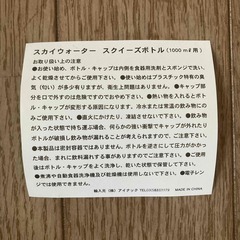 スカイウォーター スクイーズボトル(1000㎖用)
お取り扱い上の注意
●お使い始め、ボトル・キャップは内側を食器用洗剤とスポンジで洗い、
よく乾燥させてからご使用下さい。●使い始めはプラスチック特有の臭
気(匂い)が多少有りますが、衛生上問題はありません。●キャップ部
分を口で咥えて引くのはお止め下さい。●熱い物を入れるとボトル・キャッ
プが変形する恐れがあります。冷水または常温の飲み物にの
みご使用下さい。●直火にかけたり、凍結させないで下さい。●飲み物
が入った状態で持ち運ぶ場合、何らかの強い衝撃でキャップが外れたり
ボトルが破損し飲み物が漏れることがあります。ご注意下さい。
●本製品は密容器ではありません。ボトルを逆さにして圧力がかか
る場合、まれに飲料漏れする事がありますのでご注意下さい。●ご使用
後はボトル・キャップをよく洗浄し、乾いた状態で保管して下さい。
●煮沸や自動食器洗浄機及び乾燥機は使用しないで下さい。●電子レン
ジでは使用できません。
輸入元(株)アイテック MADE IN CHINA